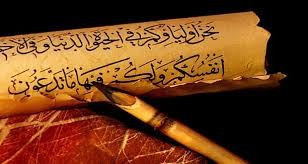 نحن أولياؤكم في الحيوة الدنيا وفي الآخر
أنفسكم ولكم فيها ما تدعون